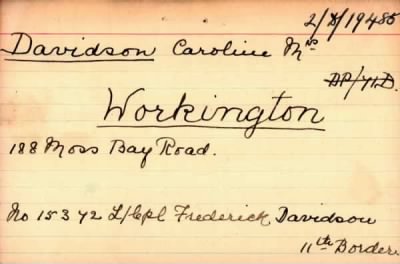 2/D/19485
Davidson Caroline Mrs
DP/41D.
Workington
188 Moss Bay Road.
No 15372 L/Cpl Frederick Davidson
11th Border